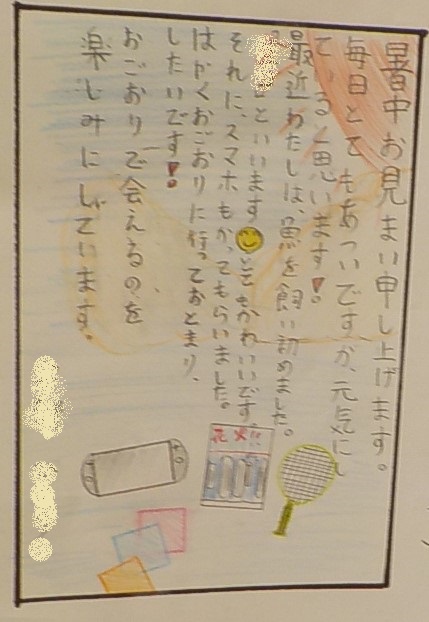 暑中お見まい申し上げます。
毎日とてもあついですが、元気にし
ていると思います!
最近わたしは、魚を飼い初めました。
といいます とてもかわいいです。
それに、スマホもかってもらいました。
はやくおごおりに行っておとまり、
したいです!
おごおりで会えるのを
楽しみにしています。
花火!!